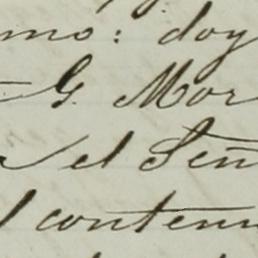 mo: doy
G. Mor
el Señ
conten